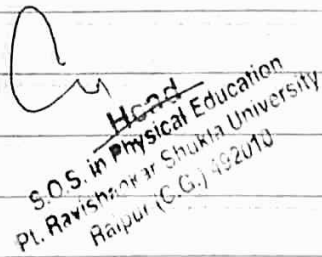 Head
S.O.S. in Physical Education
Pt. Ravishankar Shukla University
Raipur (C.G.) 492010